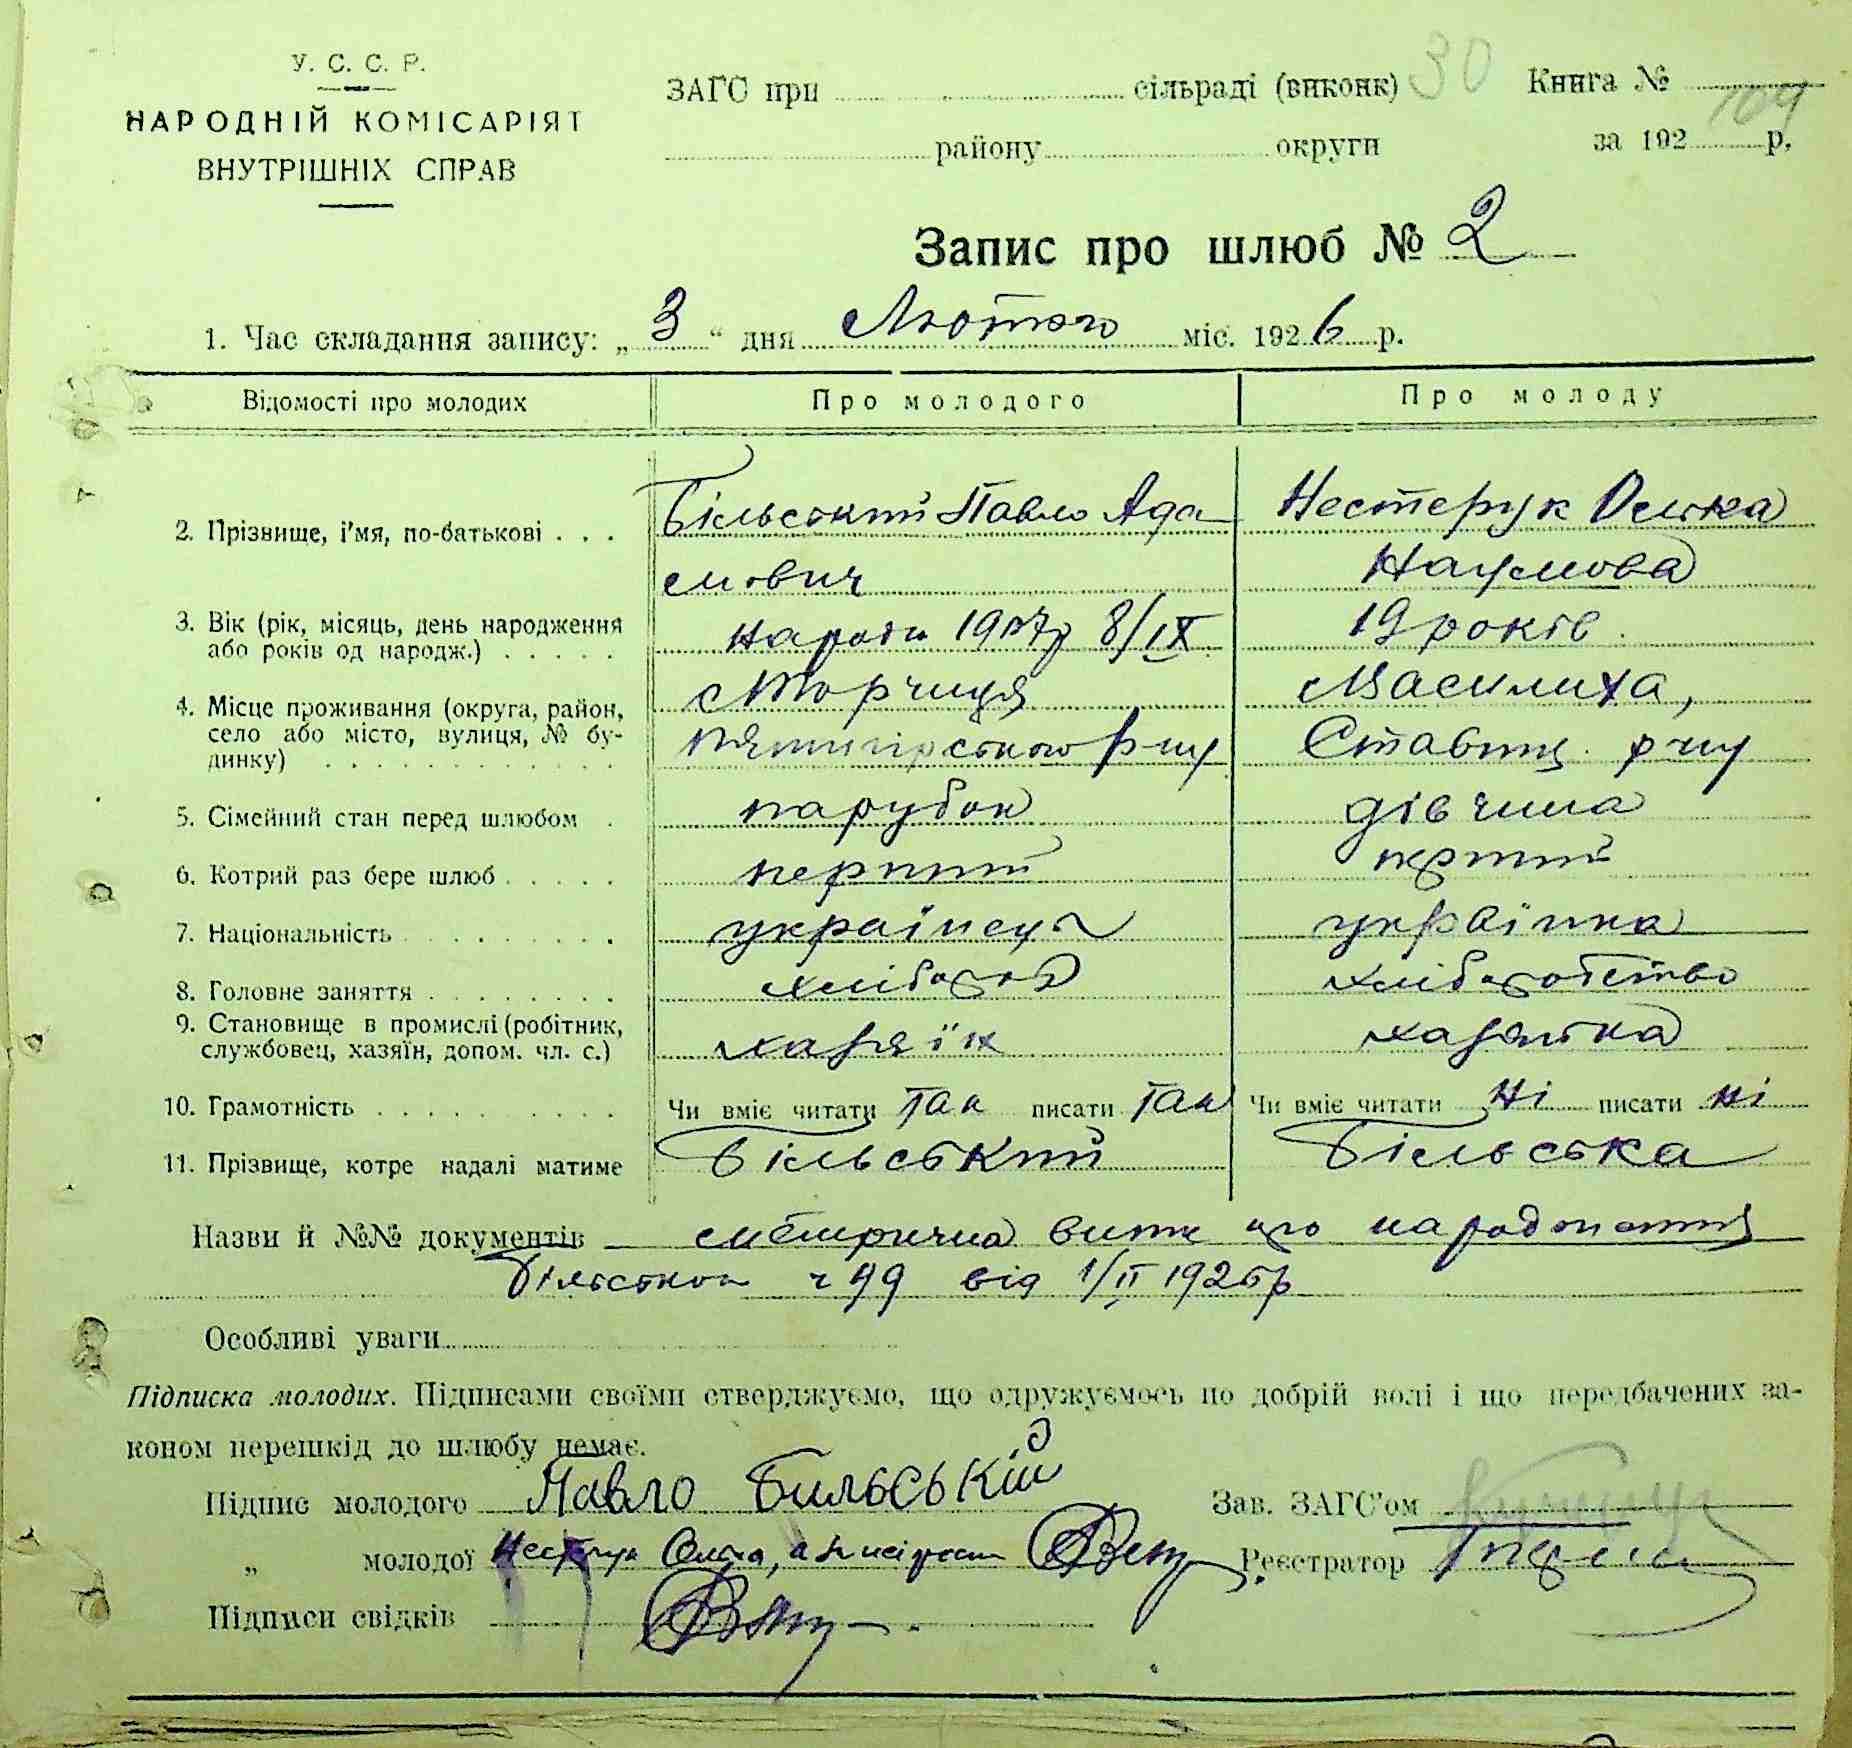 У. С. С. Р.
НАРОДНІЙ КОМІСАРІЯТ
ВНУТРІШНІХ СПРАВ
ЗАГС при сільраді (виконк) 30 Книга №
району округи за 192 р. 104
Запис про шлюб № 2
1. Час складання запису: „3“ дня Лютого міс. 1926 р.
Відомості про молодих Про молодого Про молоду
2. Прізвище, і'мя, по-батькові . . . Більський Павло Ада Нестерук Олька
мович Наумова
3. Вік (рік, місяць, день народження або років од народж.) . . . . . 1907р 8/IX 19 років
4. Місце проживання (округа, район, село або місто, вулиця, № бу-динку) . . . . . . . . . . . с Торчиця с Василиха,
Пятигірського р-ну Ставищ. р-ну
5. Сімейний стан перед шлюбом . парубок дівчина
6. Котрий раз бере шлюб . . . . . перший перший
7. Національність . . . . . . . . . українець українка
8. Головне заняття . . . . . . . . хлібороб хліборобство
9. Становище в промислі (робітник, службовец, хазяїн, допом. чл. с.) хазяїн хазяйка
10. Грамотність . . . . . . . . . . Чи вміє читати так писати так Чи вміє читати ні писати ні
11. Прізвище, котре надалі матиме Більський Більська
Назви й №№ документів метрична випис про народження
Більськ ч 49 від 1/II 1926р
Особливі уваги
Підписка молодих. Підписами своїми стверджуємо, що одружуємось по добрій волі і що передбачених за-
коном перешкід до шлюбу немає.
Підпис молодого Павло Бильській Зав. ЗАГС'ом
„ молодої Нестерук Олька, а Реєстратор
Підписи свідків